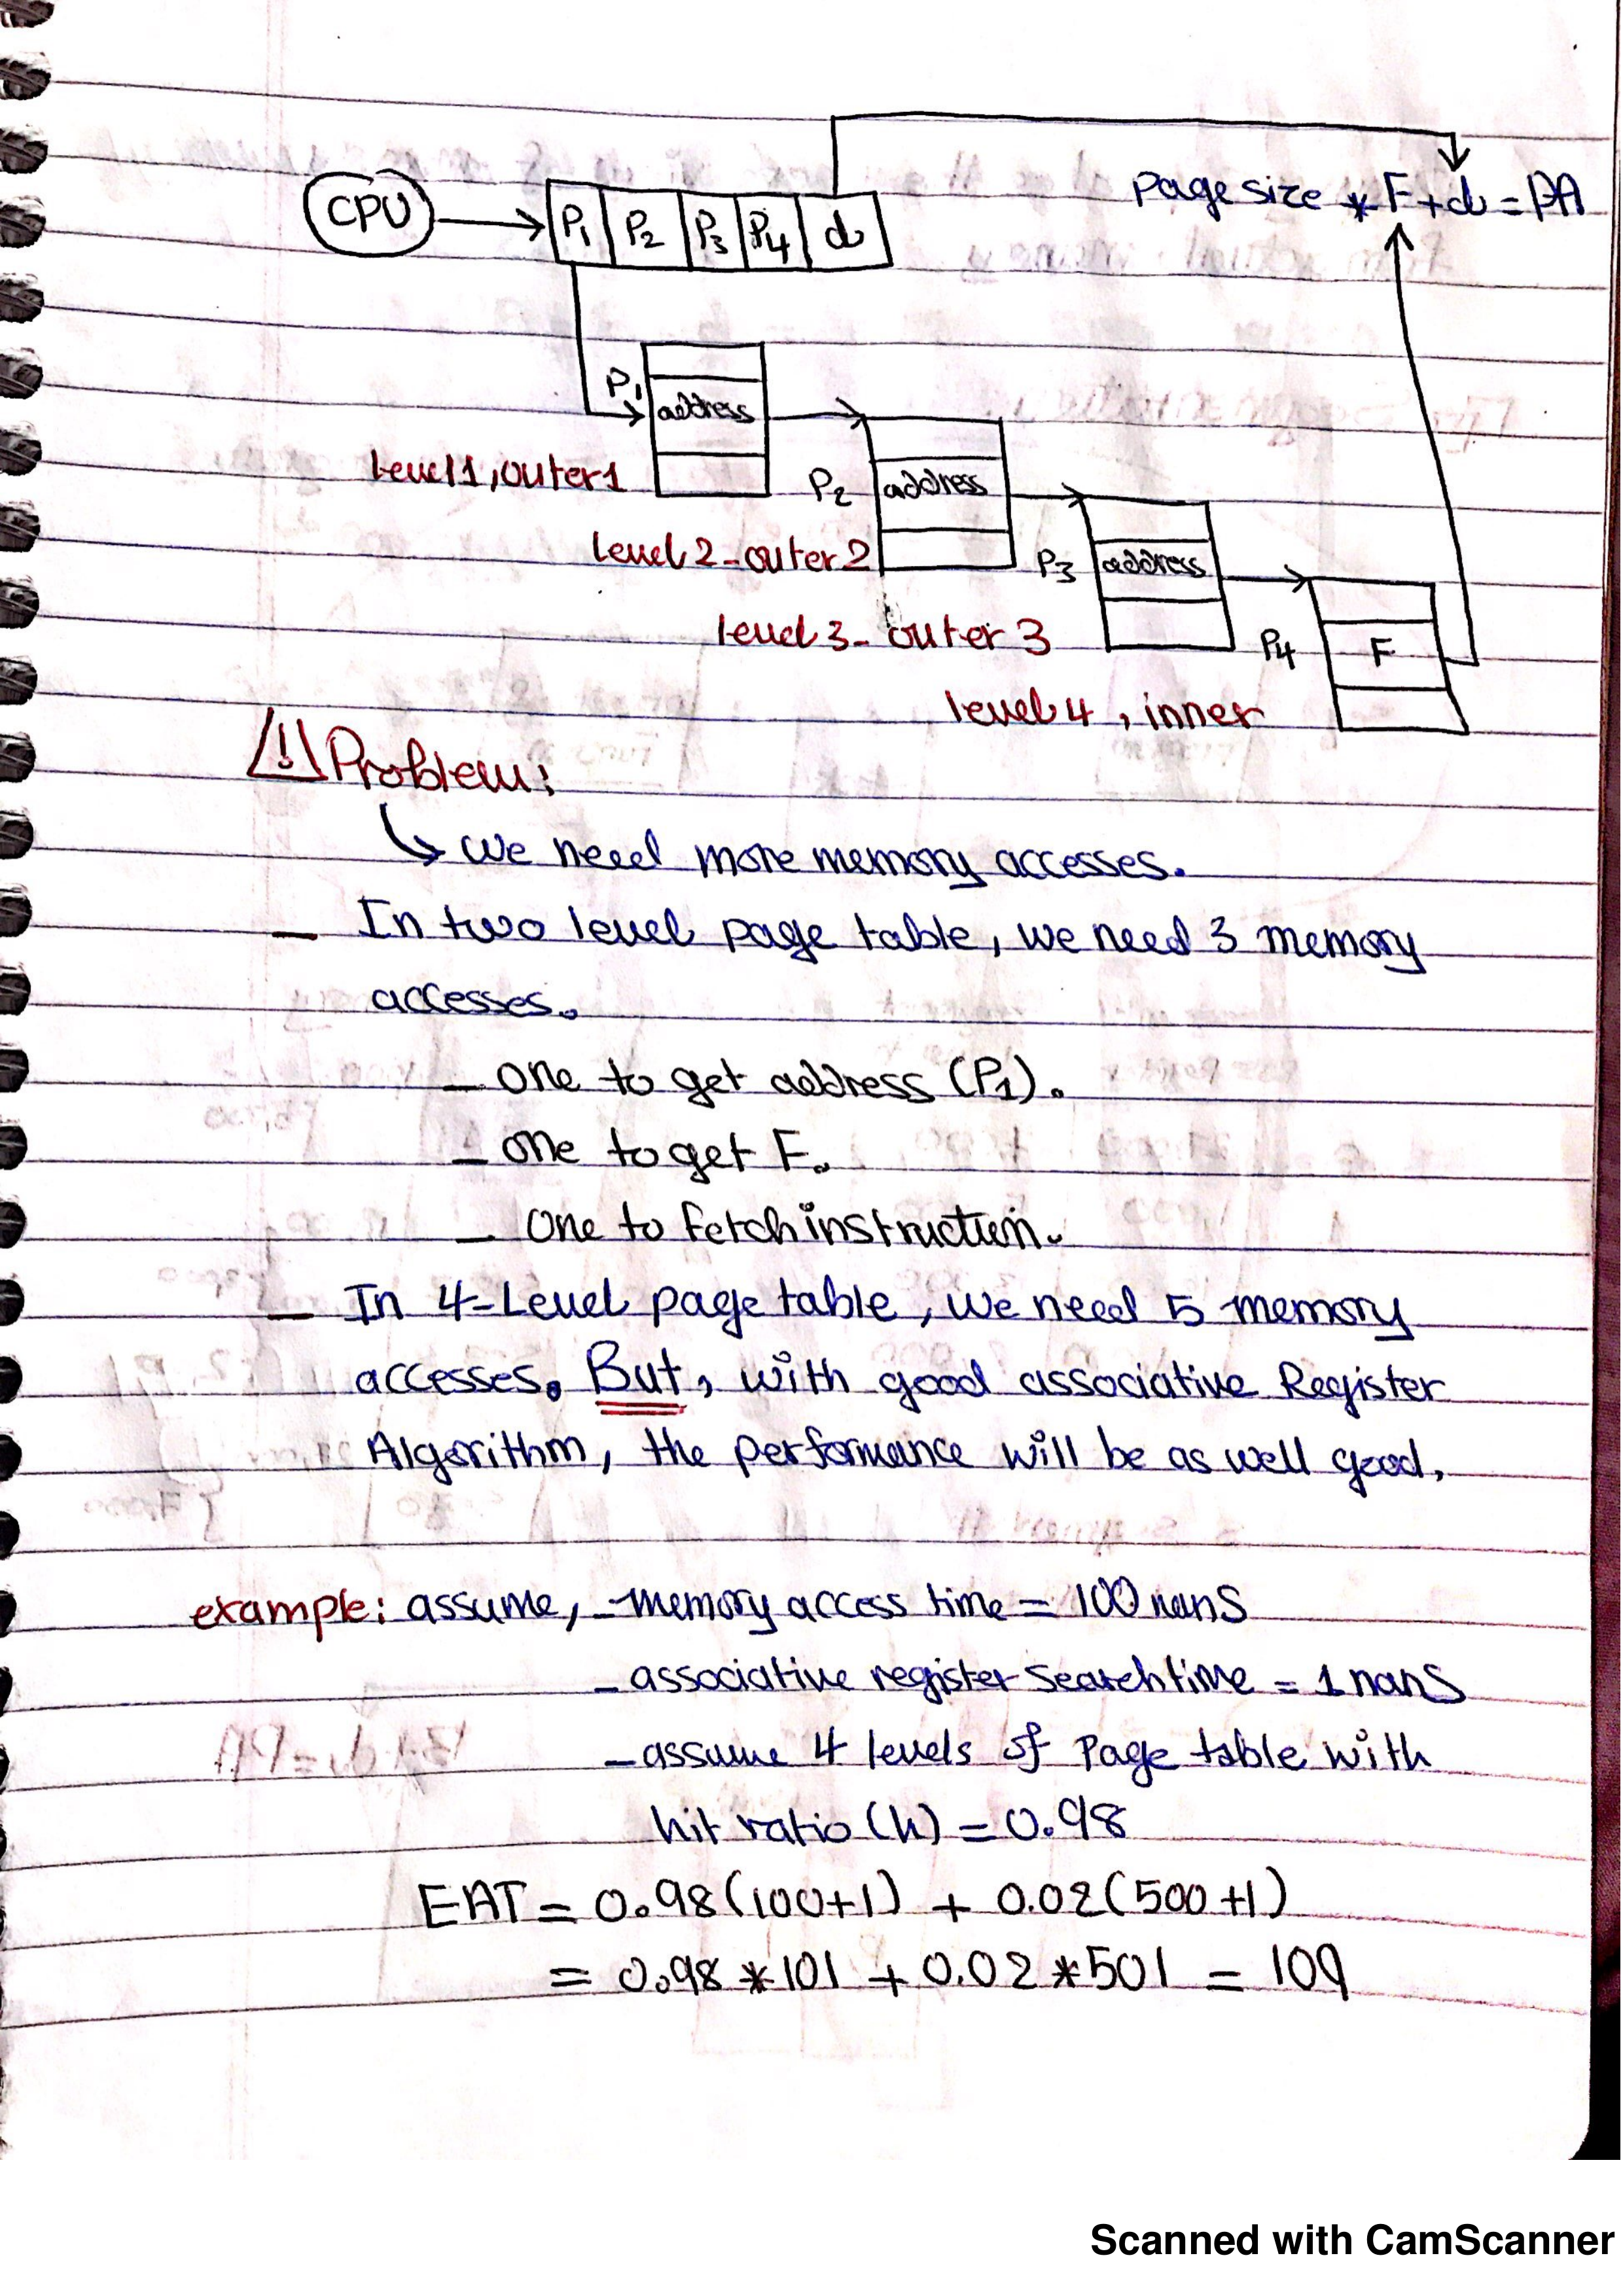 CPU
P1 P2 P3 P4 d
Page size * F + d = PA
P1
address
Level 1, outer 1
P2
address
level 2 - outer 2
P3
address
level 3 - outer 3
P4
F
level 4, inner
Problem:
we need more memory accesses.
— In two level page table, we need 3 memory
accesses.
— one to get address (P1).
— one to get F.
— one to Fetch instruction.
— In 4-Level page table, we need 5 memory
accesses. But, with good associative Register
Algorithm, the performance will be as well good.
example: assume, - memory access time = 100 nans
- associative register search time = 1 nans
- assume 4 levels of Page table with
hit ratio (h) = 0.98
EAT = 0.98(100+1) + 0.02(500+1)
= 0.98 * 101 + 0.02 * 501 = 109
Scanned with CamScanner